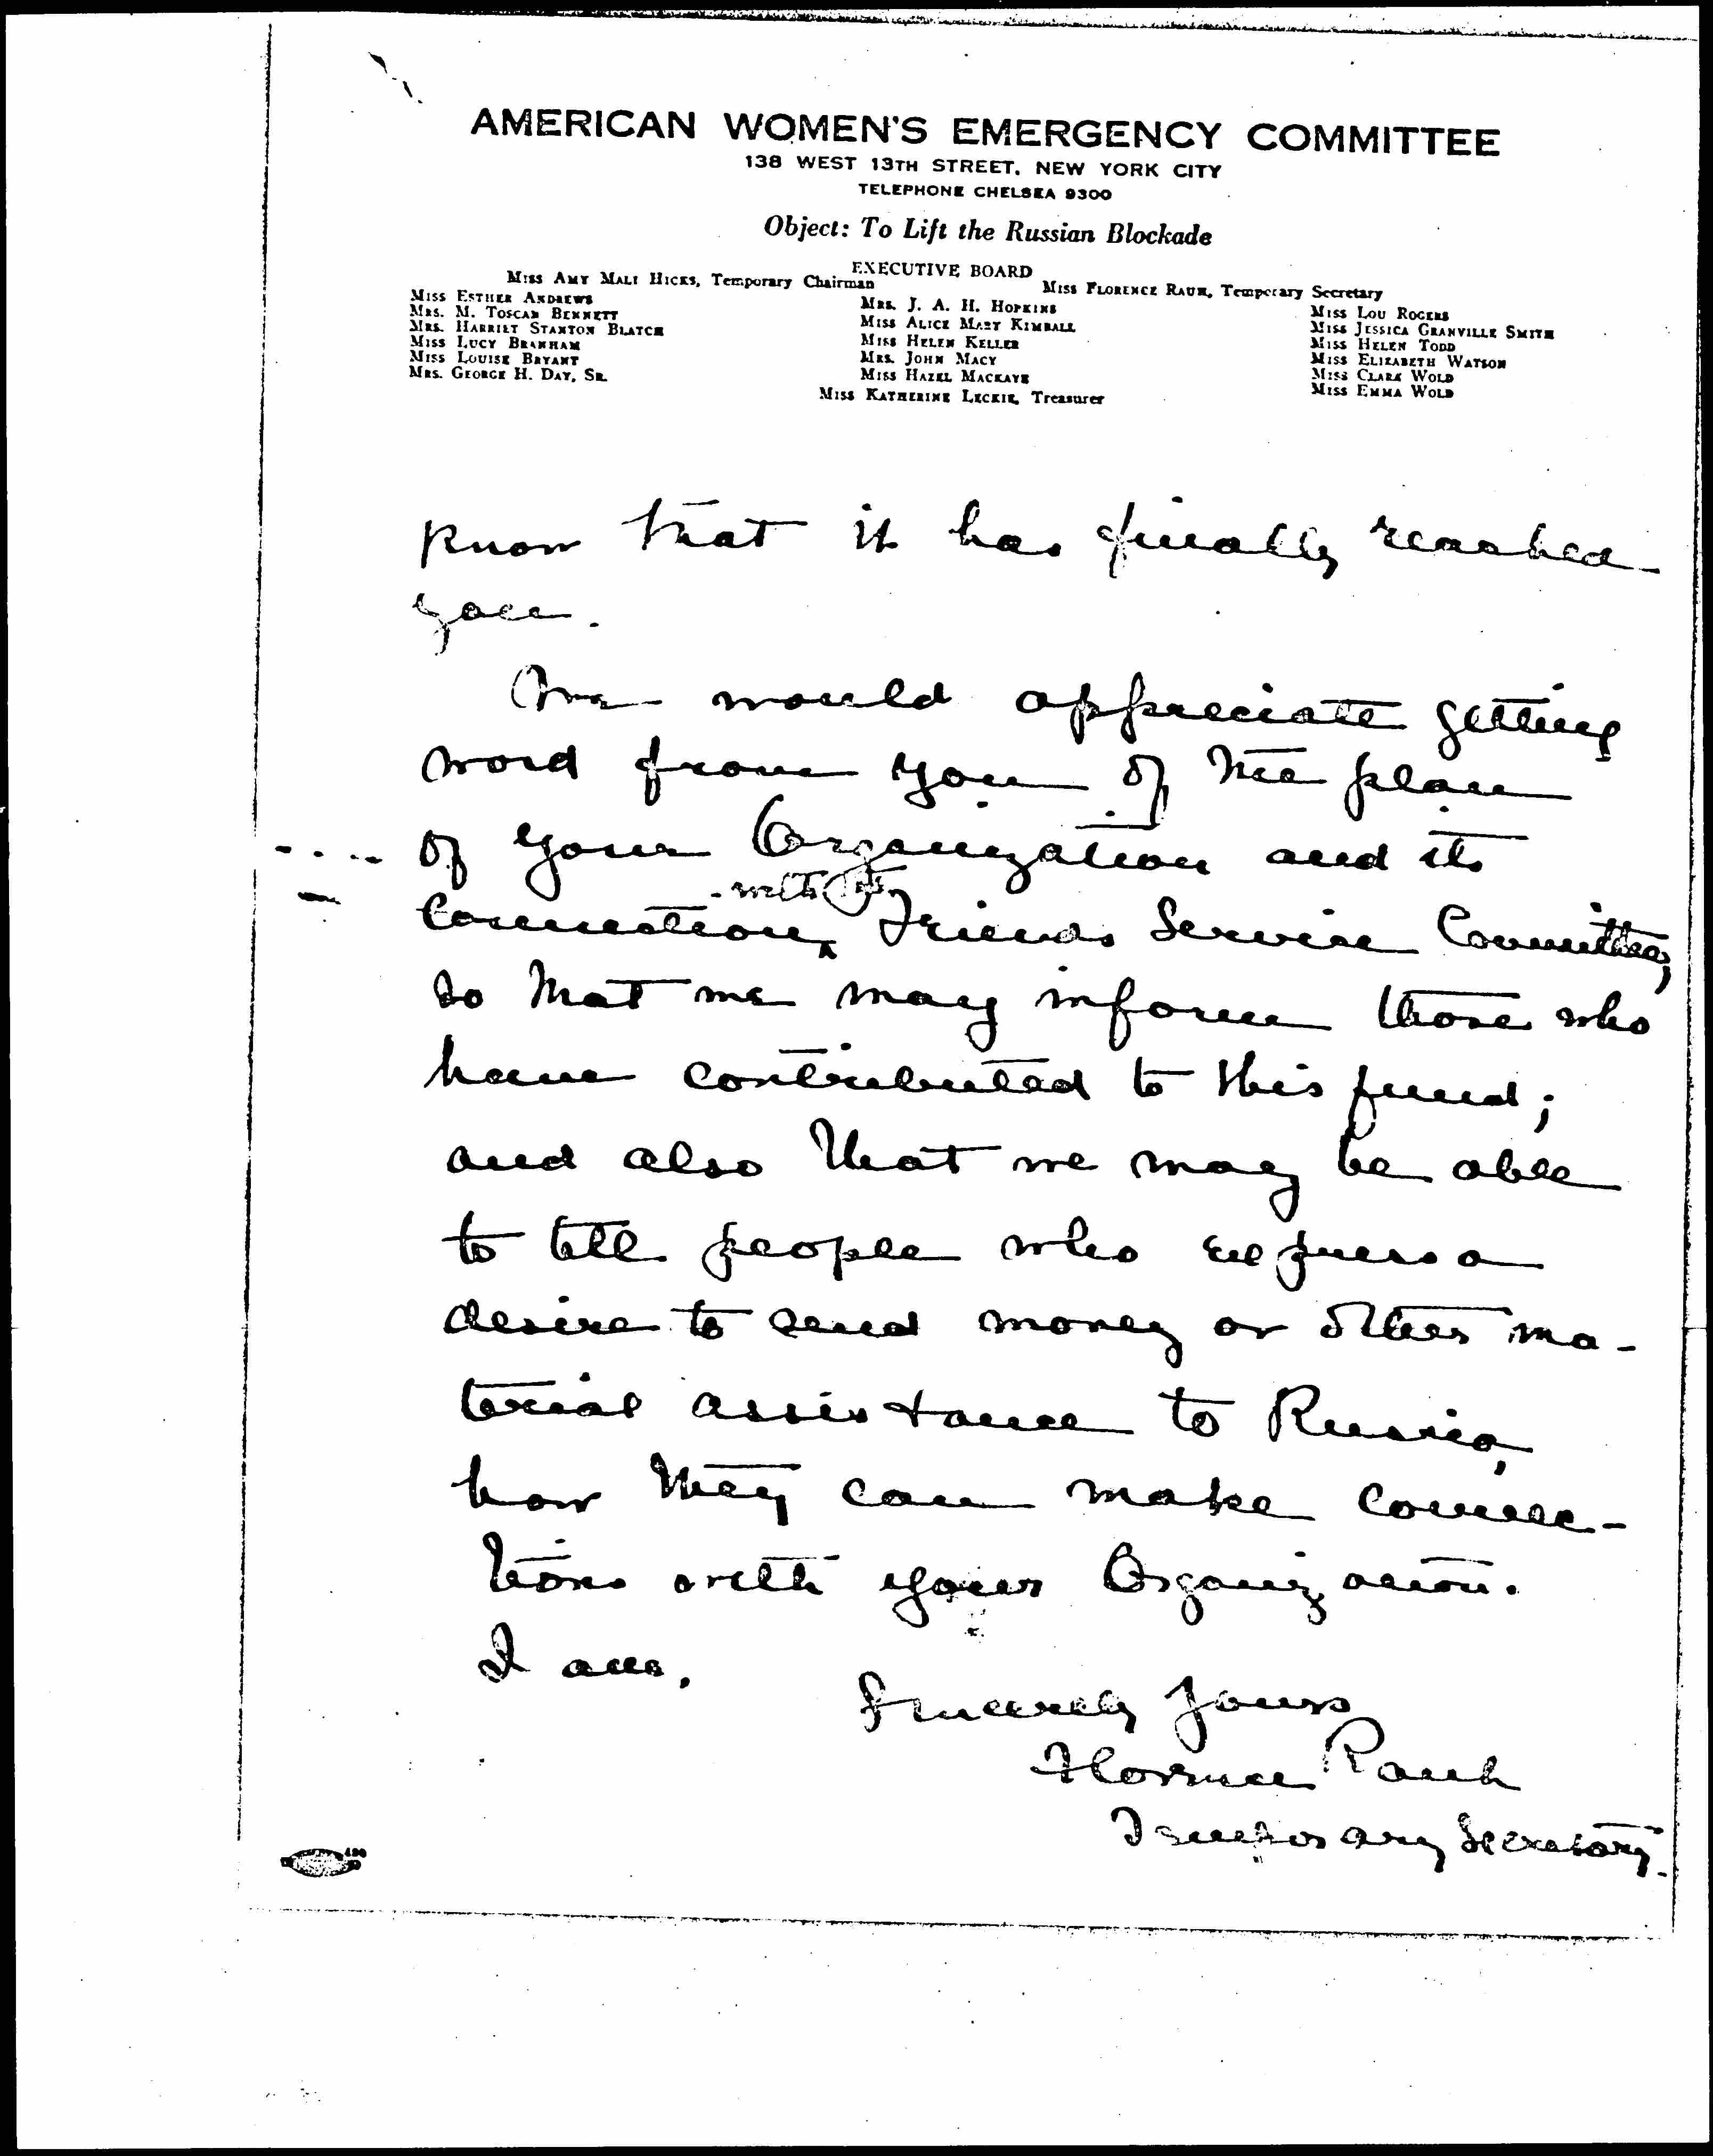 AMERICAN WOMEN'S EMERGENCY COMMITTEE
138 WEST 13TH STREET, NEW YORK CITY
TELEPHONE CHELSEA 9300
Object: To Lift the Russian Blockade
EXECUTIVE BOARD
Miss Amy Mali Hicks, Temporary Chairman
Miss Florence Rauh, Temporary Secretary
Miss Esther Andrews
Mrs. M. Toscan Bennett
Mrs. Harriet Stanton Blatch
Miss Lucy Branham
Miss Louise Bryant
Mrs. George H. Day, Sr.
Mrs. J. A. H. Hopkins
Miss Alice Mary Kimball
Miss Helen Keller
Mrs. John Macy
Miss Hazel Mackaye
Miss Lou Rogers
Miss Jessica Granville Smith
Miss Helen Todd
Miss Elizabeth Watson
Miss Clara Wold
Miss Emma Wold
Miss Katherine Leckie, Treasurer
know that it has finally reached
you.
We would appreciate getting
word from you of the plan
of your Organization and its
connection with the Friends Service Committee,
so that we may inform those who
have contributed to this fund;
and also that we may be able
to tell people who express a
desire to send money or other ma-
terial assistance to Russia,
how they can make connec-
tions with your Organization.
I am,
Sincerely Yours
Florence Rauh
Temporary Secretary.